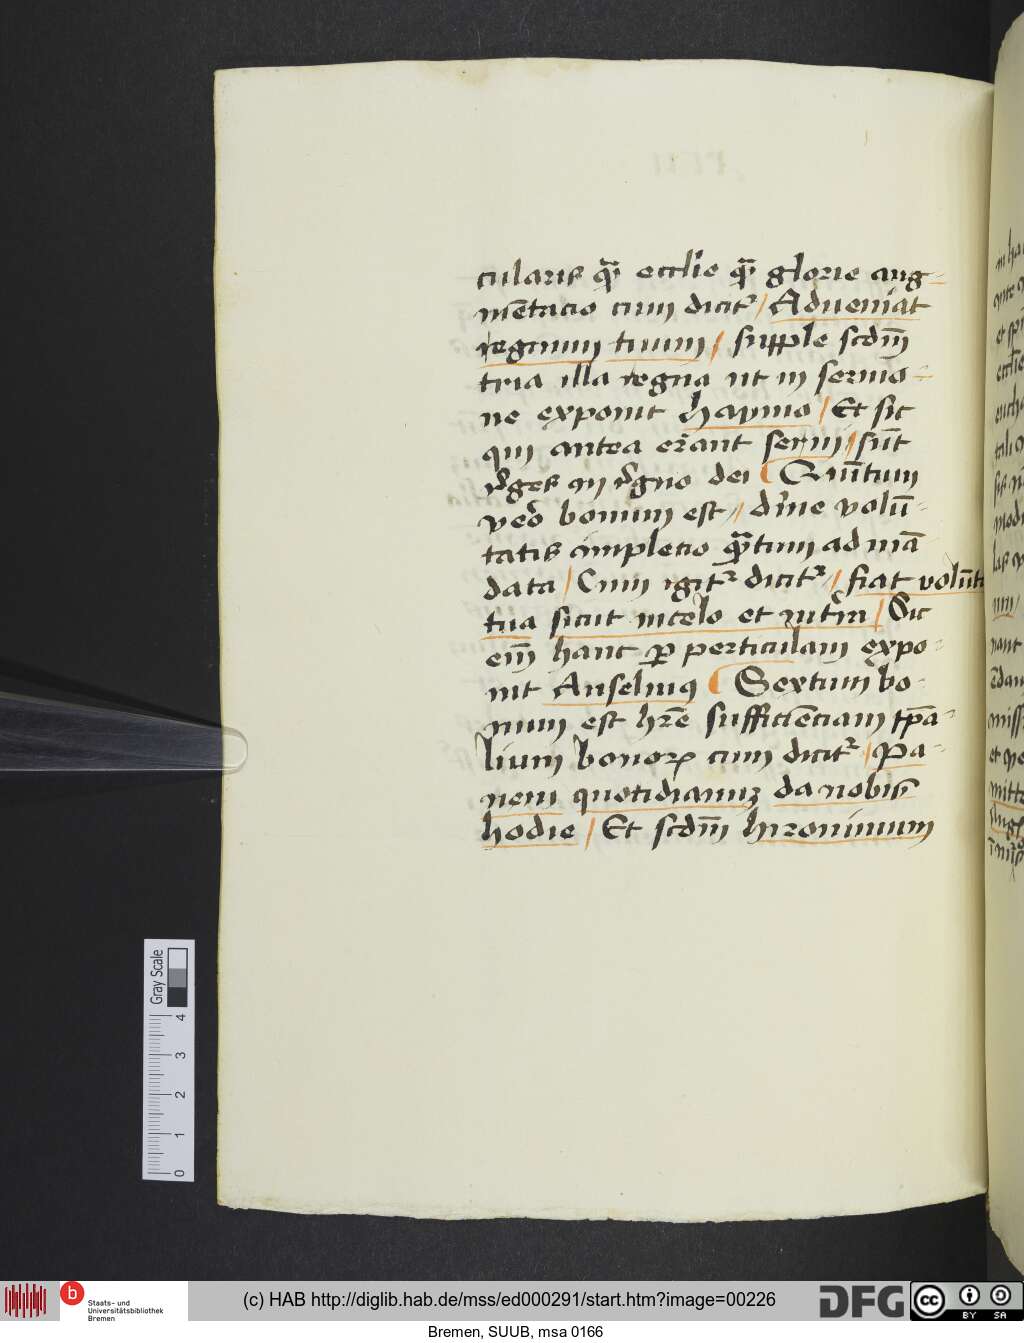 cularis qꝫ eccl̄ie qꝫ glorie aug-
mētatio cum dicitr / Adueniat
regnum tuum / supple scdm̄
tria illa regna ut in sermo-
ne exponit haymo / Et sic
qui antea erant serui / sūt
reges in regno dei Quītum
vero bonum est / diuīe volū-
tatis impletio qꝫtum ad mā
data / Cum igitr dicitr / fiat volūta
tua sicut in celo et in terra / Sic
eīn hanc ꝑ perticulam expo-
nit Anselmus Sextum bo-
num est hr̄e sufficiēciam tp̄a-
lium bonorꝫ cum dicitr / Pa-
nem quotidianum da nobis
hodie / Et scdm̄ hironimum
Gray Scale
4
3
2
1
0
b
Staats- und
Universitätsbibliothek
Bremen
(c) HAB http://diglib.hab.de/mss/ed000291/start.htm?image=00226
DFG
cc
BY
SA
Bremen, SUUB, msa 0166